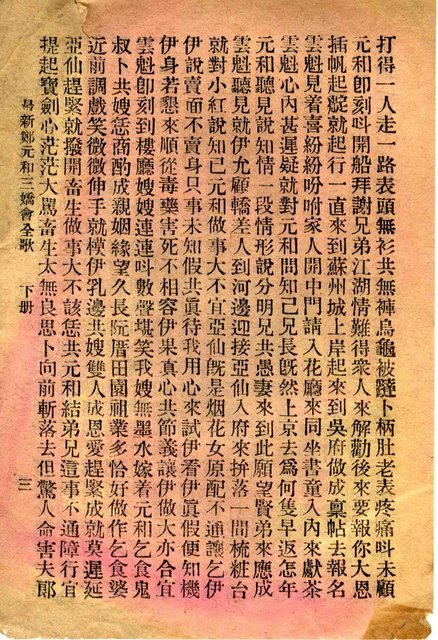 打得一人走一路表頭無衫共無褲烏龜被陞卜柄肚老表疼痛呌未顧
元和卽刻呌開船拜謝兄弟江湖情難得衆人來解勸後來要報你大恩
插帆起碇就起行一直來到蘇州城上岸起來到吳府做成稟帖去報名
雲魁見着喜紛紛吩咐家人開中門請入花廳來同坐書童入內來獻茶
雲魁心內甚遲疑就對元和問知己兄長旣然上京去爲何隻早返怎年
元和聽見說知情一段情形說分明兄共愚妻來到此願望賢弟來應成
雲魁聽見就伊允顧轎差人到河邊迎接亞仙入府來拚落一間梳粧台
就對小紅說知己元和做事大不宜亞仙旣是烟花女原配不通讓乞伊
伊說賣面不賣身只事未知假共眞待我用心來試伊看伊眞假便知機
伊身若懇來順從毒藥害死不相容伊果眞心共節義讓伊做大亦合宜
雲魁卽刻到樓廳嫂嫂連連呌數聲堪笑我嫂無墨水嫁着元和乞食鬼
叔卜共嫂恁商酌成親姻緣望久長阮厝田園祖業多恰好做作乞食婆
近前調戲笑微微伸手就模伊乳邊共嫂雙人成恩愛趕緊成就莫遲延
亞仙趕緊就撥開畜生做事大不該恁共元和結弟兄這事不通障行宜
提起寶劍心茫茫大罵畜生太無良思卜向前斬落去但驚人命害夫郎
最新鄭元和三嬌會全歌 下册 三